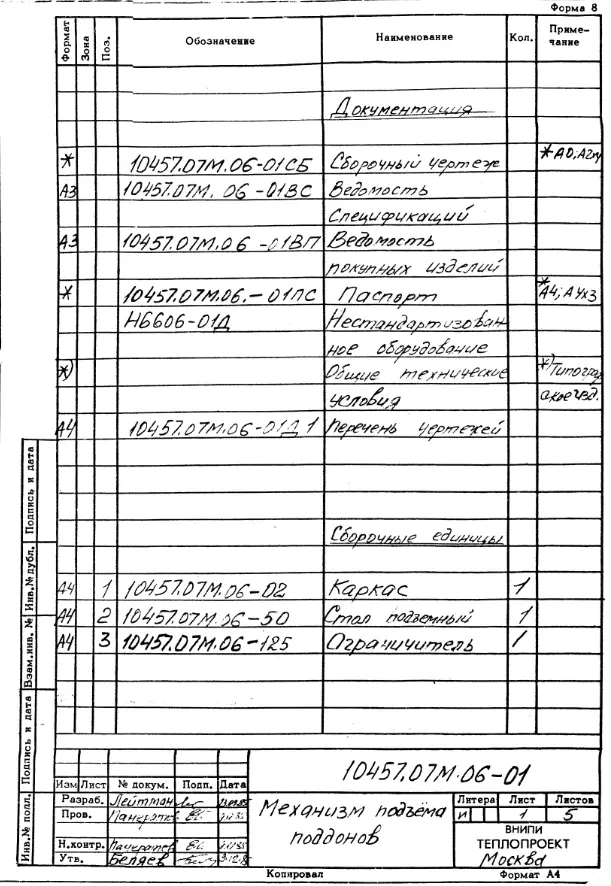 Форма 8
Формат Зона Поз. Обозначение Наименование Кол. Приме-
чание
Документация
* 10457.07М.06-01СБ Сборочный чертеж *А0;
А3 10457.07М.06-01ВС Ведомость
Спецификаций
А3 10457.07М.06-01ВП Ведомость
покупных изделий
* 10457.07М.06.-01ПС Паспорт *А4; А4х3
Н6606-01Д Нестандартизован-
ное оборудование
*) Общие технические
условия
А4 10457.07М.06-01Д1 Перечень чертежей
Сборочные единицы
А4 1 10457.07М.06-02 Каркас 1
А4 2 10457.07М.06-50 Стол 1
А4 3 10457.07М.06-125 Ограничитель 1
Инв.№ подл. Подпись и дата Взам.инв. № Инв.№ дубл. Подпись и дата
10457.07М.06-01
Изм Лист № докум. Подп. Дата
Разраб. Лейтман
Пров.
Н.контр.
Утв. Беляев
Механизм подъёма
поддонов
Литера Лист Листов
И 1 5
ВНИПИ
ТЕПЛОПРОЕКТ
Москва
Копировал Формат А4